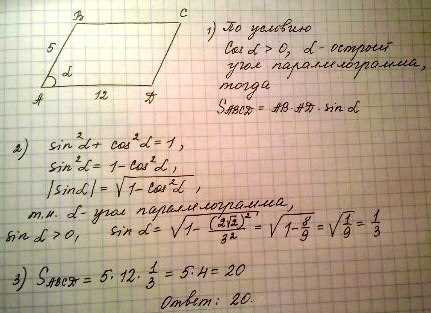 B
C
5
α
A
12
D
1) По условию
cos α > 0, α - острый
угол параллелограмма,
тогда
S_ABCD = AB·AD·sin α
2) sin²α + cos²α = 1,
sin²α = 1 - cos²α,
|sin α| = √(1 - cos²α),
т.к. α - угол параллелограмма,
sin α > 0, sin α = √(1 - (2√2)²/3²) = √(1 - 8/9) = √(1/9) = 1/3
3) S_ABCD = 5·12·1/3 = 5·4 = 20
Ответ: 20.